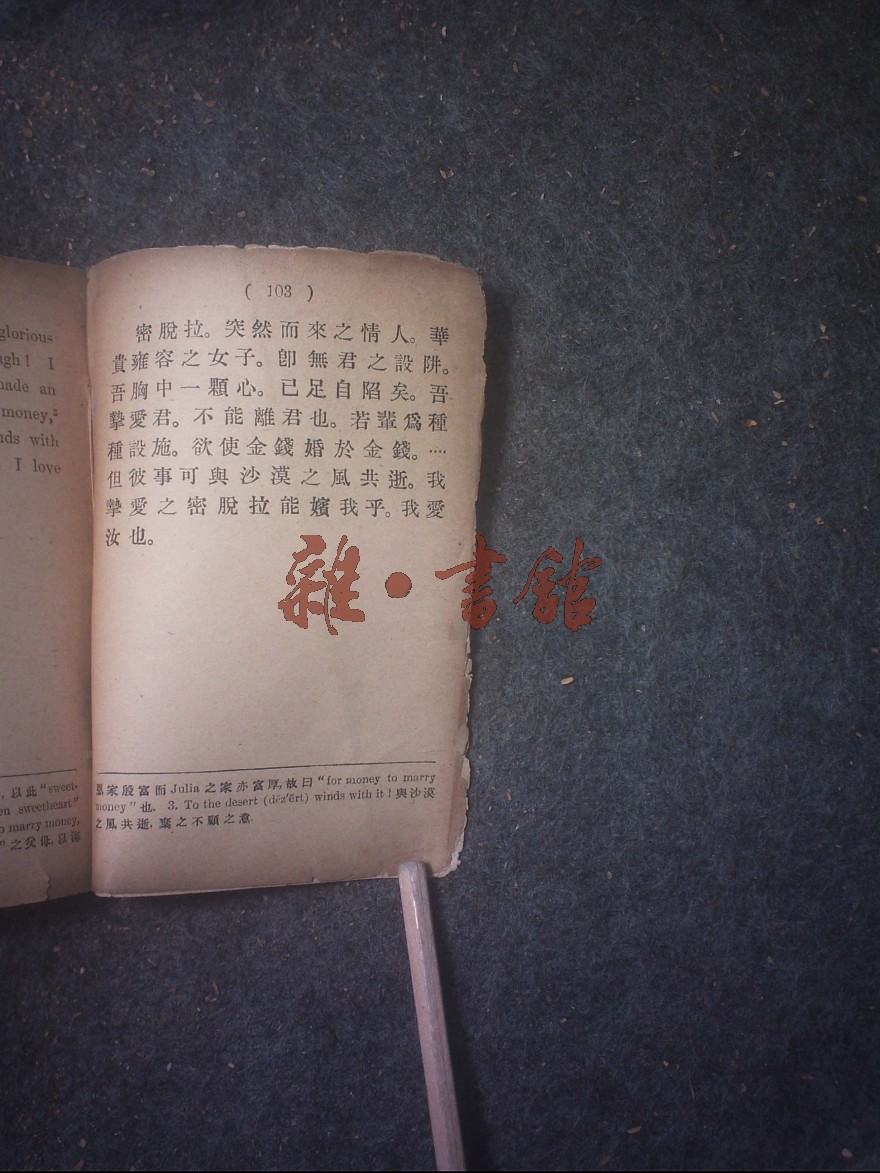 glorious
ugh! I
made an
money,²
nds with
I love
, 以此 "sweet-
en sweetheart"
o marry money,
" 之父母, 以海
( 103 )
密脫拉。突然而來之情人。華
貴雍容之女子。卽無君之設阱。
吾胸中一顆心。已足自陷矣。吾
摯愛君。不能離君也。若輩爲種
種設施。欲使金錢婚於金錢。····
但彼事可與沙漠之風共逝。我
摯愛之密脫拉能嬪我乎。我愛
汝也。
雜·書館
家殷富而 Julia 之家亦富厚, 故曰 "for money to marry
money" 也. 3. To the desert (dĕz′ẽrt) winds with it! 與沙漠
之風共逝, 棄之不顧之意.